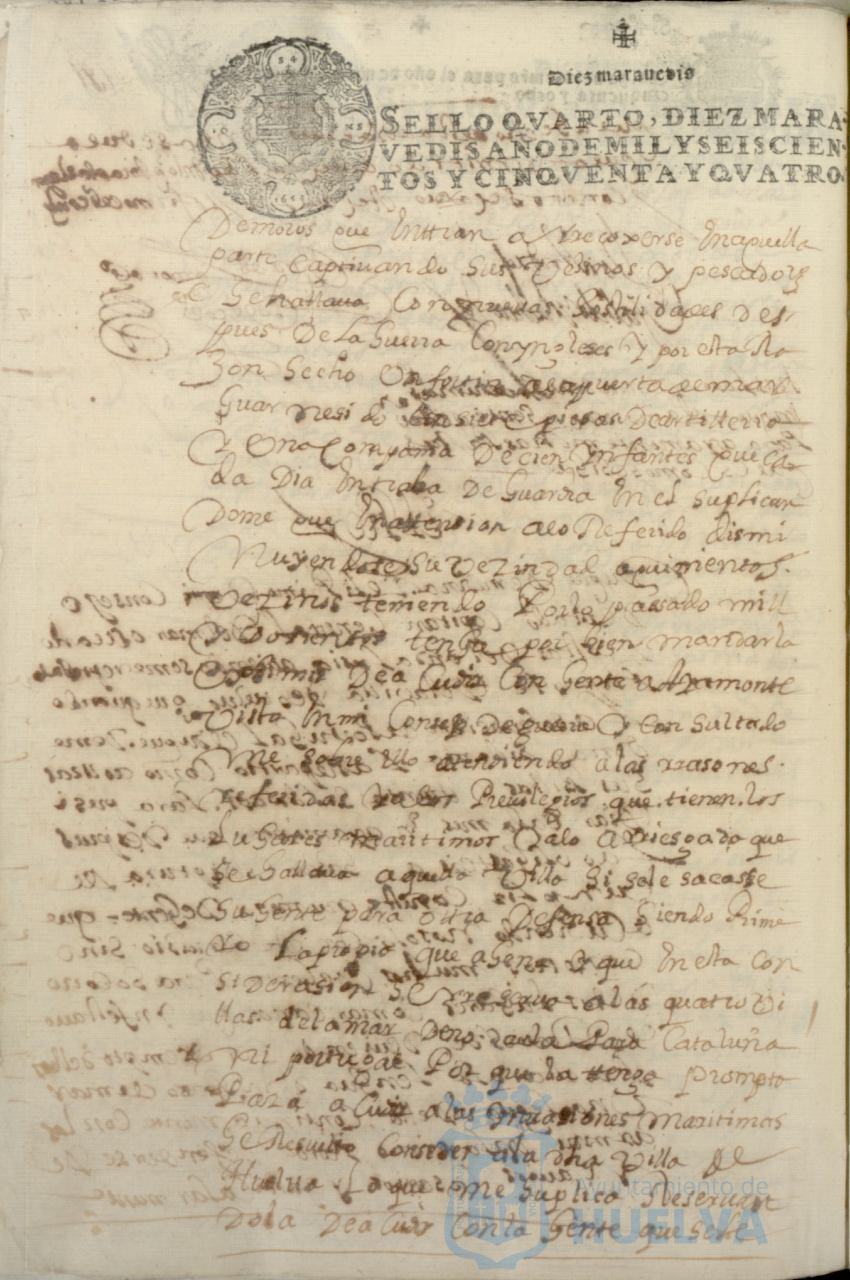 Diez maravedis
SELLO QVARTO, DIEZ MARA-
VEDIS AÑO DE MIL Y SEISCIEN-
TOS Y CINQVENTA Y QVATRO.
Demoros que entran a recoxerse en aquella
parte captivando sus vesinos y pescadores
Se hallava con nuevas hostilidades des
pues De la Guerra Con yngleses y por esta Ra
zon hecho un fuerte a la puerta de mar
Guarnesido con siete piesas De artilleria
Y Una Compañia De cien ynfantes que ca
da Dia Entraba De Guardia En el suplican
Dome que En attension a lo Referido dismi
Nuyendose su vezindad a quinientos
vezinos teniendo Por lo passado mill
y Dosientos tenga por bien mandarla
De a Cudir Con Gente a Ayamonte
Visto En mi Consejo De guerra y con sultado
me sobre ello atendiendo a las rasones
referidas y a los Previlegios que tienen los
Lugares maritimos y a lo arriesgado que
Se hallava aquella Villa si se le sacasse
Su Gente para otra Defensa siendo Prime
ro La propia que agena y que En esta con
siderasion se reserva a las quatro vi
llas de la mar para Cataluña
Ni portugal Por que la tenga prompta
Para a Cudir a las ynvasiones maritimas
He Resuelto Conseder a la dha Villa de
Huelva Lo que me suplica Reservan
Dola De a Cudir Con la Gente que se le
Ayuntamiento de
HUELVA